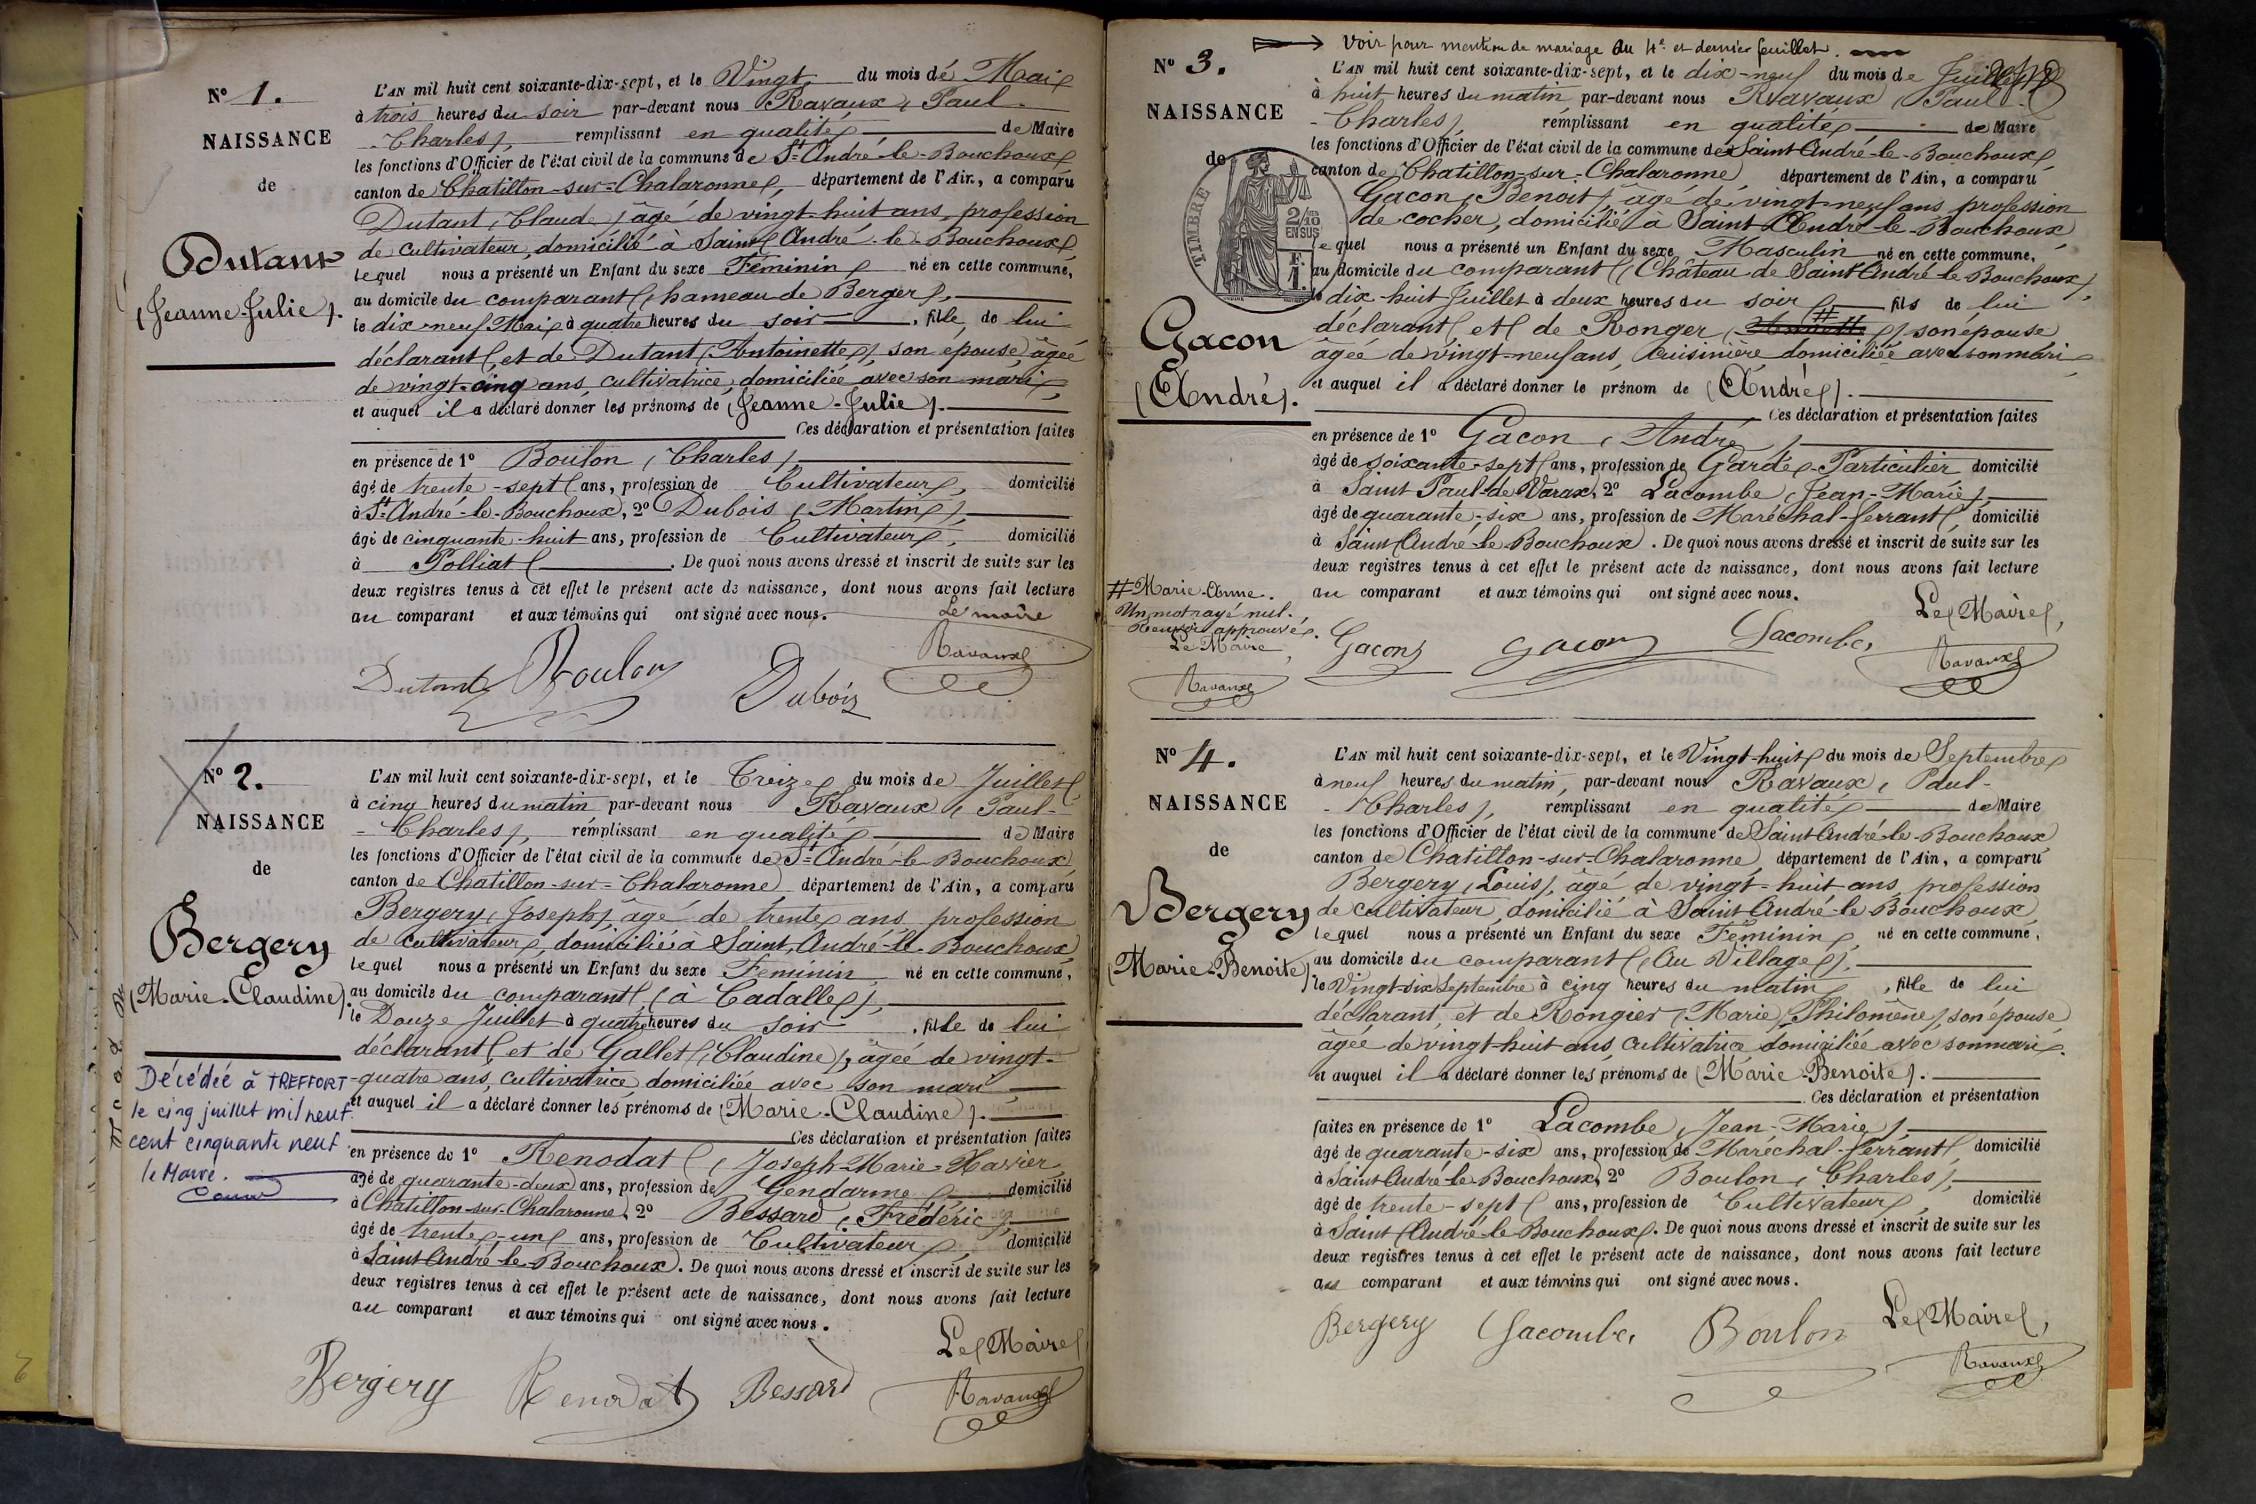 N° 1.
NAISSANCE
de
Dutant
(Jeanne-Julie).
L'AN mil huit cent soixante-dix-sept, et le Vingt du mois de Mai
à trois heures du soir par-devant nous Ravaux, Paul-
-Charles), remplissant en qualité de Maire
les fonctions d'Officier de l'état civil de la commune de St André-le-Bouchoux,
canton de Chatillon-sur-Chalaronne, département de l'Ain, a comparu
Dutant, Claude, âgé de vingt-huit ans, profession
de cultivateur, domicilié à Saint André-le-Bouchoux,
lequel nous a présenté un Enfant du sexe Féminin né en cette commune,
au domicile du comparant (hameau de Berger),
le dix-neuf Mai à quatre heures du soir, fille de lui
déclarant, et de Dutant (Antoinette), son épouse, âgée
de vingt-cinq ans, cultivatrice, domiciliée avec son mari,
et auquel il a déclaré donner les prénoms de (Jeanne-Julie).
Ces déclaration et présentation faites
en présence de 1° Boulon (Charles),
âgé de trente-sept ans, profession de Cultivateur, domicilié
à St-André-le-Bouchoux, 2° Dubois (Martin),
âgé de cinquante-huit ans, profession de Cultivateur, domicilié
à Polliat. De quoi nous avons dressé et inscrit de suite sur les
deux registres tenus à cet effet le présent acte de naissance, dont nous avons fait lecture
au comparant et aux témoins qui ont signé avec nous.
Le maire
Ravaux
Dutant Boulon Dubois
N° 2.
NAISSANCE
de
Bergery
(Marie-Claudine).
L'AN mil huit cent soixante-dix-sept, et le Treize du mois de Juillet
à cinq heures du matin par-devant nous Ravaux, Paul-
-Charles), remplissant en qualité de Maire
les fonctions d'Officier de l'état civil de la commune de St-André-le-Bouchoux
canton de Chatillon-sur-Chalaronne département de l'Ain, a comparu
Bergery (Joseph) âgé de trente ans, profession
de cultivateur, domicilié à Saint-André-le-Bouchoux
lequel nous a présenté un Enfant du sexe Féminin né en cette commune,
au domicile du comparant (à Cadalle),
le Douze Juillet à quatre heures du soir, fille de lui
déclarant, et de Gallet (Claudine), âgée de vingt-
-quatre ans, cultivatrice domiciliée avec son mari
et auquel il a déclaré donner les prénoms de (Marie-Claudine).
Ces déclaration et présentation faites
en présence de 1° Renodat (Joseph-Marie-Xavier
âgé de quarante-deux ans, profession de Gendarme domicilié
à Chatillon-sur-Chalaronne, 2° Bessard (Frédéric),
âgé de trente-un ans, profession de Cultivateur, domicilié
à Saint André-le-Bouchoux. De quoi nous avons dressé et inscrit de suite sur les
deux registres tenus à cet effet le présent acte de naissance, dont nous avons fait lecture
au comparant et aux témoins qui ont signé avec nous.
Décédée à TREFFORT
le cinq juillet mil neuf
cent cinquante neuf
le Maire.
Le Maire
Bergery Renodat Bessard Ravaux
Voir pour mention de mariage au 4e et dernier feuillet.
N° 3.
NAISSANCE
de
TIMBRE
2/10 EN SUS
F. 1.
Gacon
(André).
L'AN mil huit cent soixante-dix-sept, et le dix-neuf du mois de Juillet
à huit heures du matin, par-devant nous Ravaux, Paul-
-Charles), remplissant en qualité de Maire
les fonctions d'Officier de l'état civil de la commune de Saint André-le-Bouchoux,
canton de Chatillon-sur-Chalaronne, département de l'Ain, a comparu
Gacon, Benoit, âgé de vingt-neuf ans, profession
de cocher, domicilié à Saint André-le-Bouchoux
lequel nous a présenté un Enfant du sexe Masculin né en cette commune,
au domicile du comparant (Château de Saint André-le-Bouchoux),
le dix-huit Juillet à deux heures du soir, fils de lui
déclarant et de Ronger, # Annette, son épouse
âgée de vingt-neuf ans, cuisinière domiciliée avec son mari
et auquel il a déclaré donner le prénom de (André).
Ces déclaration et présentation faites
en présence de 1° Gacon, André,
âgé de soixante-sept ans, profession de Garde-Particulier domicilié
à Saint Paul-de-Varax, 2° Lacombe, Jean-Marie),
âgé de quarante-six ans, profession de Maréchal-ferrant, domicilié
à Saint André-le-Bouchoux. De quoi nous avons dressé et inscrit de suite sur les
deux registres tenus à cet effet le présent acte de naissance, dont nous avons fait lecture
au comparant et aux témoins qui ont signé avec nous.
# Marie-Anne.
Un mot rayé nul.
Renvoi approuvé.
Le Maire,
Ravaux
Le Maire,
Gacon Gacon Lacombe, Ravaux
N° 4.
NAISSANCE
de
Bergery
(Marie-Benoite)
L'AN mil huit cent soixante-dix-sept, et le Vingt-huit du mois de Septembre
à neuf heures du matin, par-devant nous Ravaux, Paul-
-Charles), remplissant en qualité de Maire
les fonctions d'Officier de l'état civil de la commune de Saint André-le-Bouchoux
canton de Chatillon-sur-Chalaronne département de l'Ain, a comparu
Bergery (Louis), âgé de vingt-huit ans, profession
de cultivateur, domicilié à Saint-André-le-Bouchoux,
lequel nous a présenté un Enfant du sexe Féminin, né en cette commune,
au domicile du comparant (Au Village),
le Vingt-six Septembre à cinq heures du matin, fille de lui
déclarant, et de Rongier (Marie Philomène), son épouse
âgée de vingt-huit ans, cultivatrice domiciliée avec son mari.
et auquel il a déclaré donner les prénoms de (Marie-Benoite).
Ces déclaration et présentation
faites en présence de 1° Lacombe, Jean-Marie),
âgé de quarante-six ans, profession de Maréchal-ferrant, domicilié
à Saint-André-le-Bouchoux, 2° Boulon, Charles),
âgé de trente-sept ans, profession de Cultivateur, domicilié
à Saint André-le-Bouchoux. De quoi nous avons dressé et inscrit de suite sur les
deux registres tenus à cet effet le présent acte de naissance, dont nous avons fait lecture
au comparant et aux témoins qui ont signé avec nous.
Le Maire,
Bergery Lacombe, Boulon Ravaux